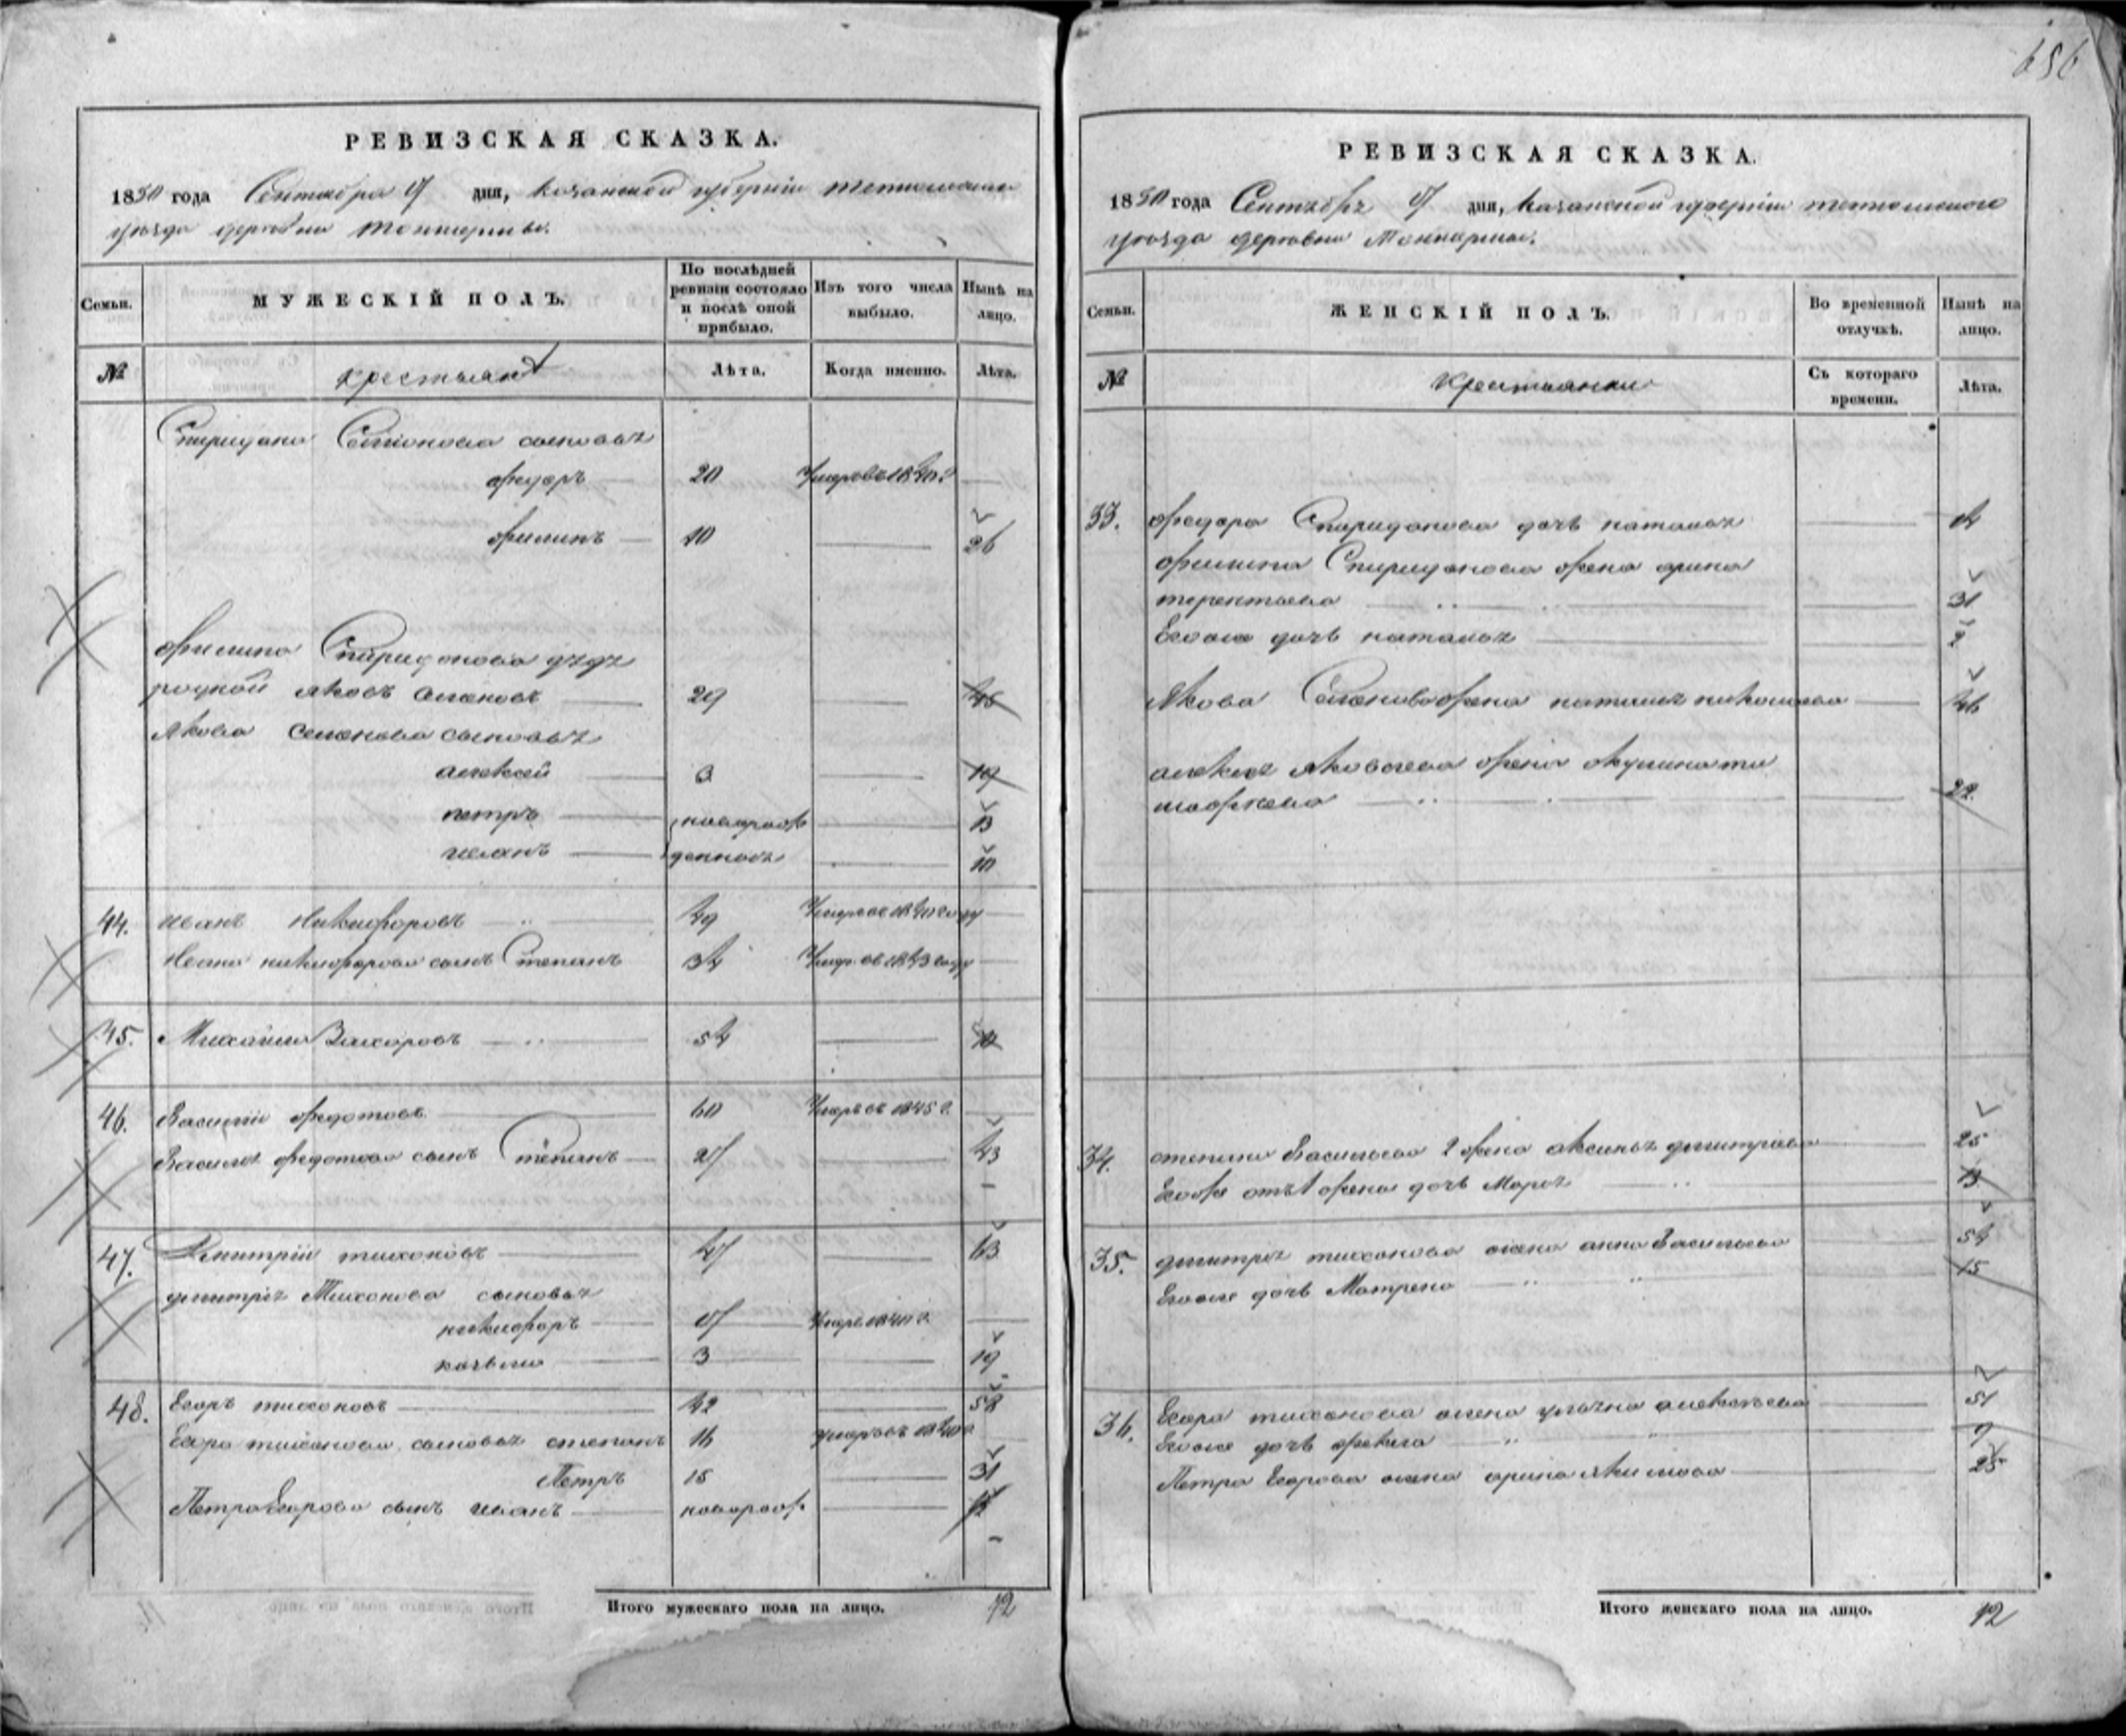 656
РЕВИЗСКАЯ СКАЗКА.
1850 года Сентября дня, Казанской губернии Тетюшскаго
уезда деревни
Семьи.
МУЖЕСКІЙ ПОЛЪ.
По послѣдней ревизіи состояло и послѣ оной прибыло.
Изъ того числа выбыло.
Нынѣ на лицо.
№
крестьянъ
Лѣта.
Когда именно.
Лѣта.
Спиридона Семенова сыновья
Федоръ 20 —
Филипъ 10 — 26
Филипа Спиридонова дядя
родной Яковъ Семеновъ 29 — 45
Якова Семенова сыновья
Алексей 3 — 19
Петръ новорож — 13
Иванъ денные — 10
44. Иванъ Никифоровъ 49 —
Ивана Никифорова сынъ Степанъ 34 —
45. Михайла Захаровъ 54 — 70
46. Василий Федотовъ 60 Умеръ въ 1845 г. —
Василья Федотова сынъ Степанъ 27 — 43
47. Дмитрій Тихоновъ 47 — 63
Дмитрія Тихонова сыновья
Никифоръ —
3 — 19
48. Егоръ Тихоновъ 42 — 58
Егора Тихонова сыновья Степанъ 16 —
Петръ 15 — 31
Петра Егорова сынъ Иванъ новорож. —
Итого мужескаго пола на лицо. 12
РЕВИЗСКАЯ СКАЗКА.
1850 года Сентября дня, Казанской губерніи Тетюшскаго
уезда деревни
Семьи.
ЖЕНСКІЙ ПОЛЪ.
Во временной отлучкѣ.
Нынѣ на лицо.
№
Крестьянки
Съ котораго времени.
Лѣта.
33. Федора Спиридонова дочь Наталья —
Филипа Спиридонова жена Арина
Терентьева — 31
Его же дочь Наталья — 2
Якова Семенова жена Наталья Николаева — 46
Алексея Яковлева жена Акулина Ти
мофеева — 22
34. Степана Васильева 2 жена Аксинья Дмитриева — 25
Его же отъ 1 жены дочь Марья — 13
35. Дмитрия Тихонова жена Анна Васильева — 54
Его же дочь Матрена — 15
36. Егора Тихонова жена Ульяна Алексѣева — 51
Его же дочь Фекла — 9
Петра Егорова жена Арина Якимова — 25
Итого женскаго пола на лицо. 12